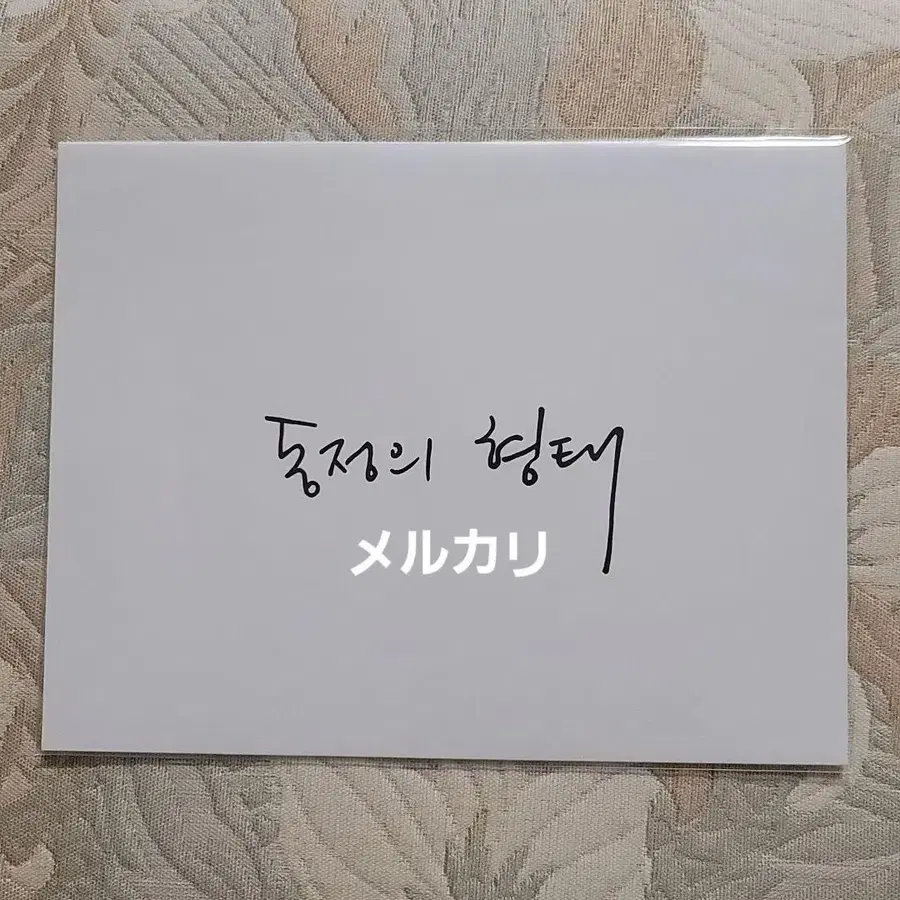 동정의 형태
メルカリ